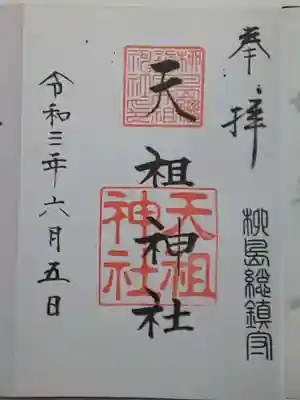 奉拝
柳島総鎮守
天祖神社
天祖
神社
令和三年六月五日